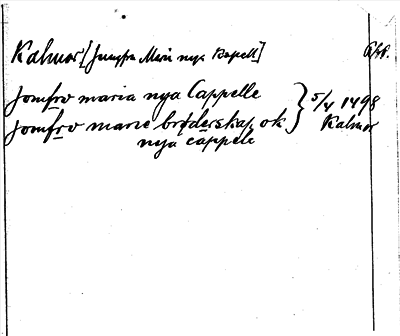 Kalmar [Jungfru Marie nya Kapell]
Jomfrv maria nya Cappelle } 5/4 1498
Jomfrv marie brøderskap ok Kalmar
nya cappele